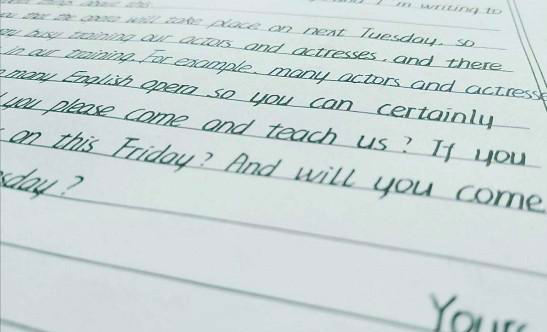 m writing to
that the opera will take place on next Tuesday, so
busy training our actors and actresses, and there
in our training. For example, many actors and actresse
many English opera so you can certainly
you please come and teach us? If you
on this Friday? And will you come
sday?
Yours